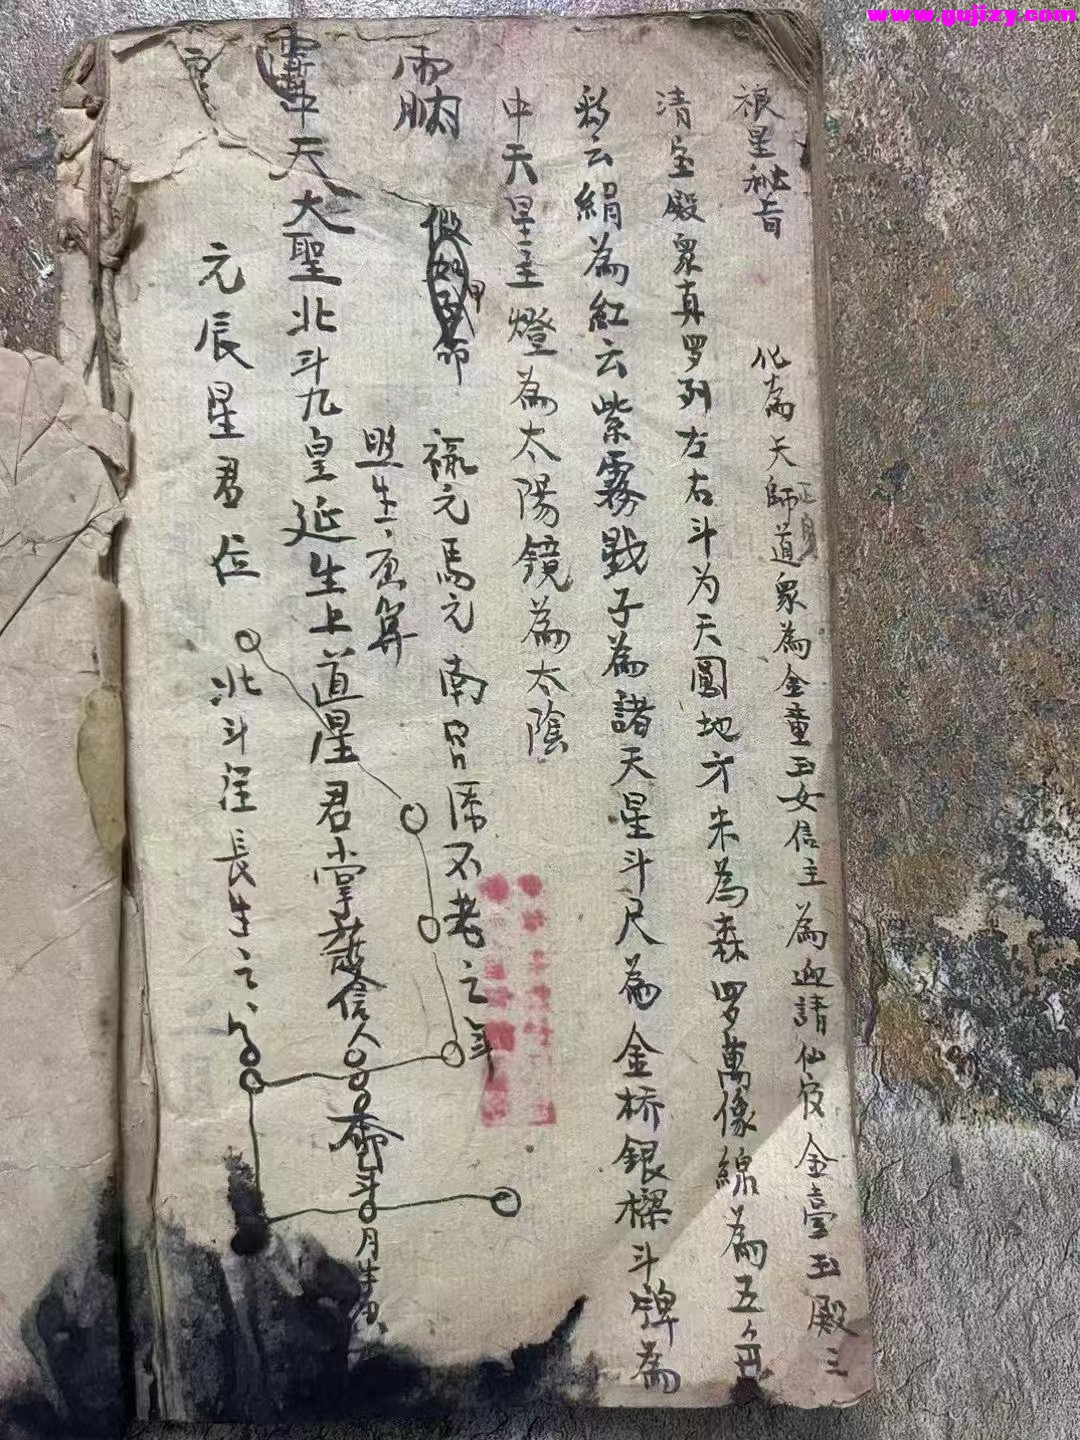 www.gujizy.com
星秘旨
化為天師道眾為金童玉女信主為迎請仙官金臺玉殿三
正身
清宝殿眾真罗列左右斗为天圓地方米為森罗萬像線為五色
彩云絹為紅云紫霧戥子為諸天星斗尺為金桥銀樑斗牌為
中天星主燈為太陽鏡為太陰
假如
甲
命
祿元馬元南宮 不老之年
照生
算
中天大聖北斗九皇延生上道星君掌 信人
斗 月生
元辰星君位
北斗 長生之